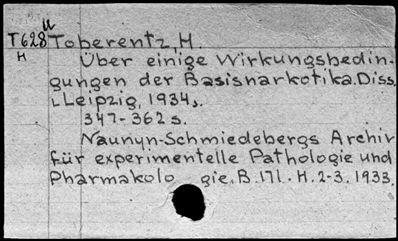 u
T628 Toberentz, H.
H
Über einige Wirkungsbedin-
gungen der Basisnarkotika. Diss.
Leipzig, 1934.
347-362 s.
Naunyn-Schmiedebergs Archiv
für experimentelle Pathologie und
Pharmakolo gie. B. 171. H. 2-3. 1933.